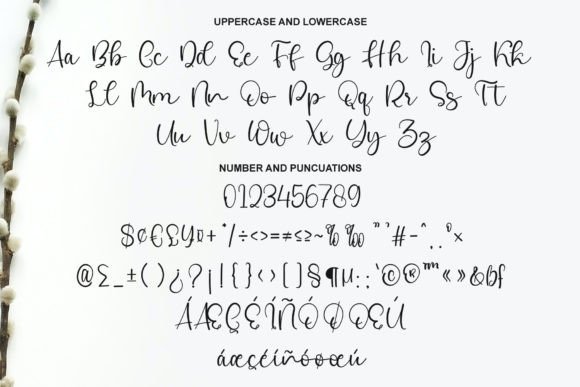 UPPERCASE AND LOWERCASE
Aa Bb Cc Dd Ee Ff Gg Hh Ii Jj Kk
Ll Mm Nn Oo Pp Qq Rr Ss Tt
Uu Vv Ww Xx Yy Zz
NUMBER AND PUNCUATIONS
0123456789
$¢€£¥¤+*/÷<>=≠≤≥~%‰"'#-^..°×
@Σ_±()¿?¡|{}‹›[]§¶µ::`©®™«»&bf
ÁÆÇÉÍÑÓØŒÚ
áæçéíñóøœú